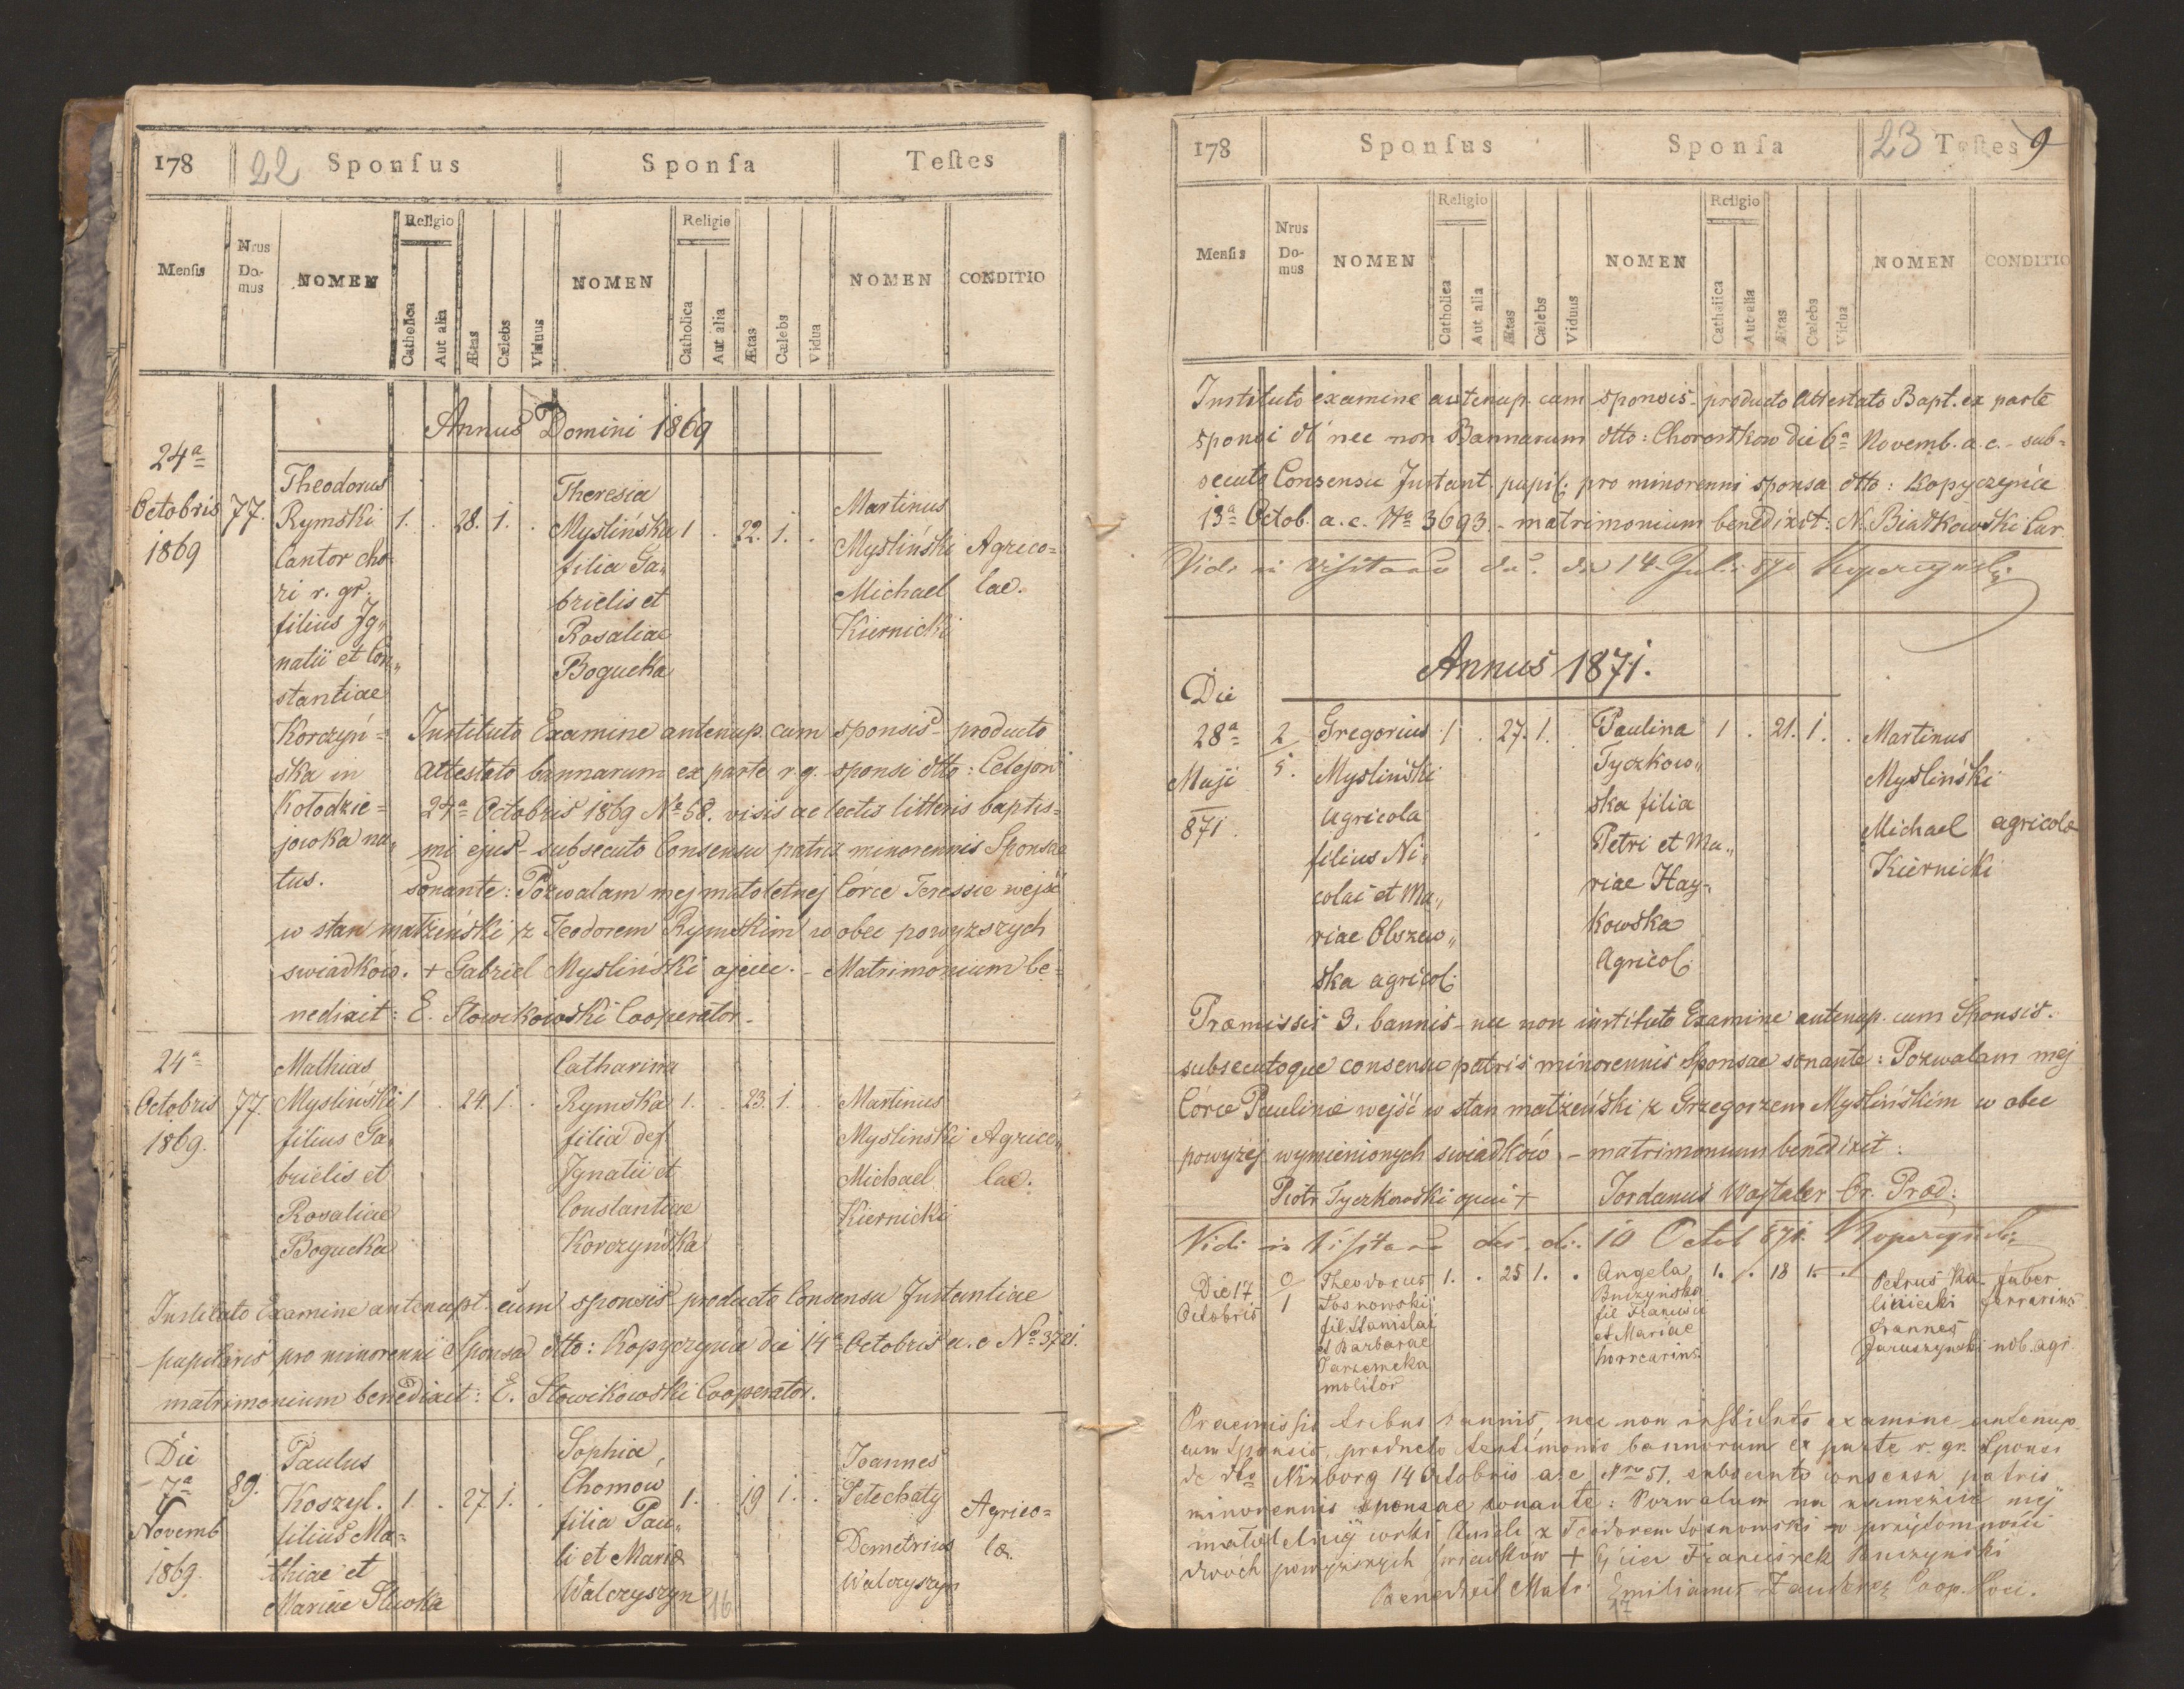 178 22 Sponſus Sponſa Teſtes
Menſis Nrus Do- mus NOMEN Religio Catholica Aut alia Ætas Cælebs Viduus NOMEN Religio Catholica Aut alia Ætas Cælebs Vidua NOMEN CONDITIO
Annus Domini 1869
24ª
Octobris
1869
77.
Theodorus
Rymski
Cantor cho-
ri r. gr.
filius Jg„
natii et Con„
stantiae
Korczyń=
ska in
Kołodzie=
jowka na„
tus.
1. . 28. 1. .
Theresia
Myslińska
filia Ga„
brielis et
Rosaliae
Bogucka
1 . 22. 1. .
Martinus
Mysliński
Michael
Kiernicki
Agrico=
lae.
Instituto Examine antenup. cum sponsis- producto
Attestato bannarum ex parte r. g. sponsi dtto: Celejon
24ª Octobris 1869 No 68. visis ac lectis litteris baptis=
mi ejus- subsecuto Consensu patris minorennis Sponsae
Sonante: Pozwalam mej małoletnej Córce Teressie wejść
w stan małżeński z Teodorem Rymskim w obec powyzszych
swiadkow. + Gabriel Mysliński ojciec. - Matrimonium be=
nedixit: E. Słowikowski Cooperator-
24ª
Octobris
1869.
77.
Mathias
Mysliński
filius Ga„
brielis et
Rosaliae
Bogucka
1 . 24. 1. .
Catharina
Rymska
filia def.
Jgnatii et
Constantiae
Korczyńska
1. . 23. 1. .
Martinus
Myslinski
Michael
Kiernicki
Agrico„
lae.
Instituto Examine antenupt. cum sponsis- producto Consensu Instantiae
pupilaris pro minorenni Sponsa dtto: Kopyczynce die 14ª Octobris a. c No 3721.
matrimonium benedixit: E. Słowikowski Cooperator.
Die
7ª
Novemb
1869.
89.
Paulus
Koszyl.
filius Ma=
thiae et
Mariae Sliwka
1. . 27. 1. .
Sophia
Chomow
filia Pau„
li et Mariae
Walczyszyn
1. . 19 1. .
Joannes
Petechaty
Demetrius
Walczyszyn
Agrico=
lae.
16
178 Sponſus Sponſa 23 Teſtes 9
Menſis Nrus Do- mus NOMEN Religio Catholica Aut alia Ætas Cælebs Viduus NOMEN Religio Catholica Aut alia Ætas Cælebs Vidua NOMEN CONDITIO
Instituto examine antenup. cum sponsis- producto Attestato Bapt. ex parte
sponsi nec non Bannarum dtto: Chorostkow die 6ª Novemb. a. c. - sub=
secuto Consensu Instant. pupil. pro minorenni sponsa dtto: Kopyczyńce
13ª Octob. a. c. No 3693. - matrimonium benedixit: N. Białkowski Cur.
Vidi in visitatione die 14 Juli 870
Annus 1871.
Die
28ª
Maji
871.
2
5.
Gregorius
Mysliński
Agricola
filius Ni„
colai et Ma„
riae Olszew„
ska agricol.
1 . 27. 1. .
Paulina
Tyczkow„
ska filia
Petri et Ma„
riae Hay„
kowska
Agricol.
1 . 21. 1. .
Martinus
Mysliński
Michael
Kiernicki
agricolae
Præmissis 3. bannis- nec non instituto Examine antenup. cum Sponsis.
subsecutoque consensu patris minorennis Sponsae sonante: Pozwalam mej
Córce Paulinie wejść w stan małżeński z Grzegorzem Myslińskim w obec
powyżej wymienionych swiadków - matrimonium benedixit:
Piotr Tyczkowski ojciec + Jordanus Wojtaler Or. Præd.
Vidi in visitatione die 10 Octob 871.
Die 17
Octobris
0
1
Theodorus
Sosnowski
fil. Stanislai
et Barbarae
molitor
1. . 25 1. .
Angela
Buczynska
fil. Francisci
et Mariae
1. . 18 1. .
Petrus Ka-
liniecki
Joannes
Jaruszynski
faber
ferrarius
nob. agr.
Praemissis tribus bannis, nec non instituto examine antenup.
cum sponsis producto testimonio bannorum ex parte r. gr. Sponsi
de dto Nizborg 14 Octobris a. c. Nro 51. subsecuto consensu patris
minorennis sponsae sonante: Pozwalam na zamęzcie mej
małoletniej corki Anieli z Teodorem Sosnowski w przytomności
dwóch powyższych swiadków + Ojciec Franciszek Buczynski
Benedixit Matr. Emilianus Coop. Loci.